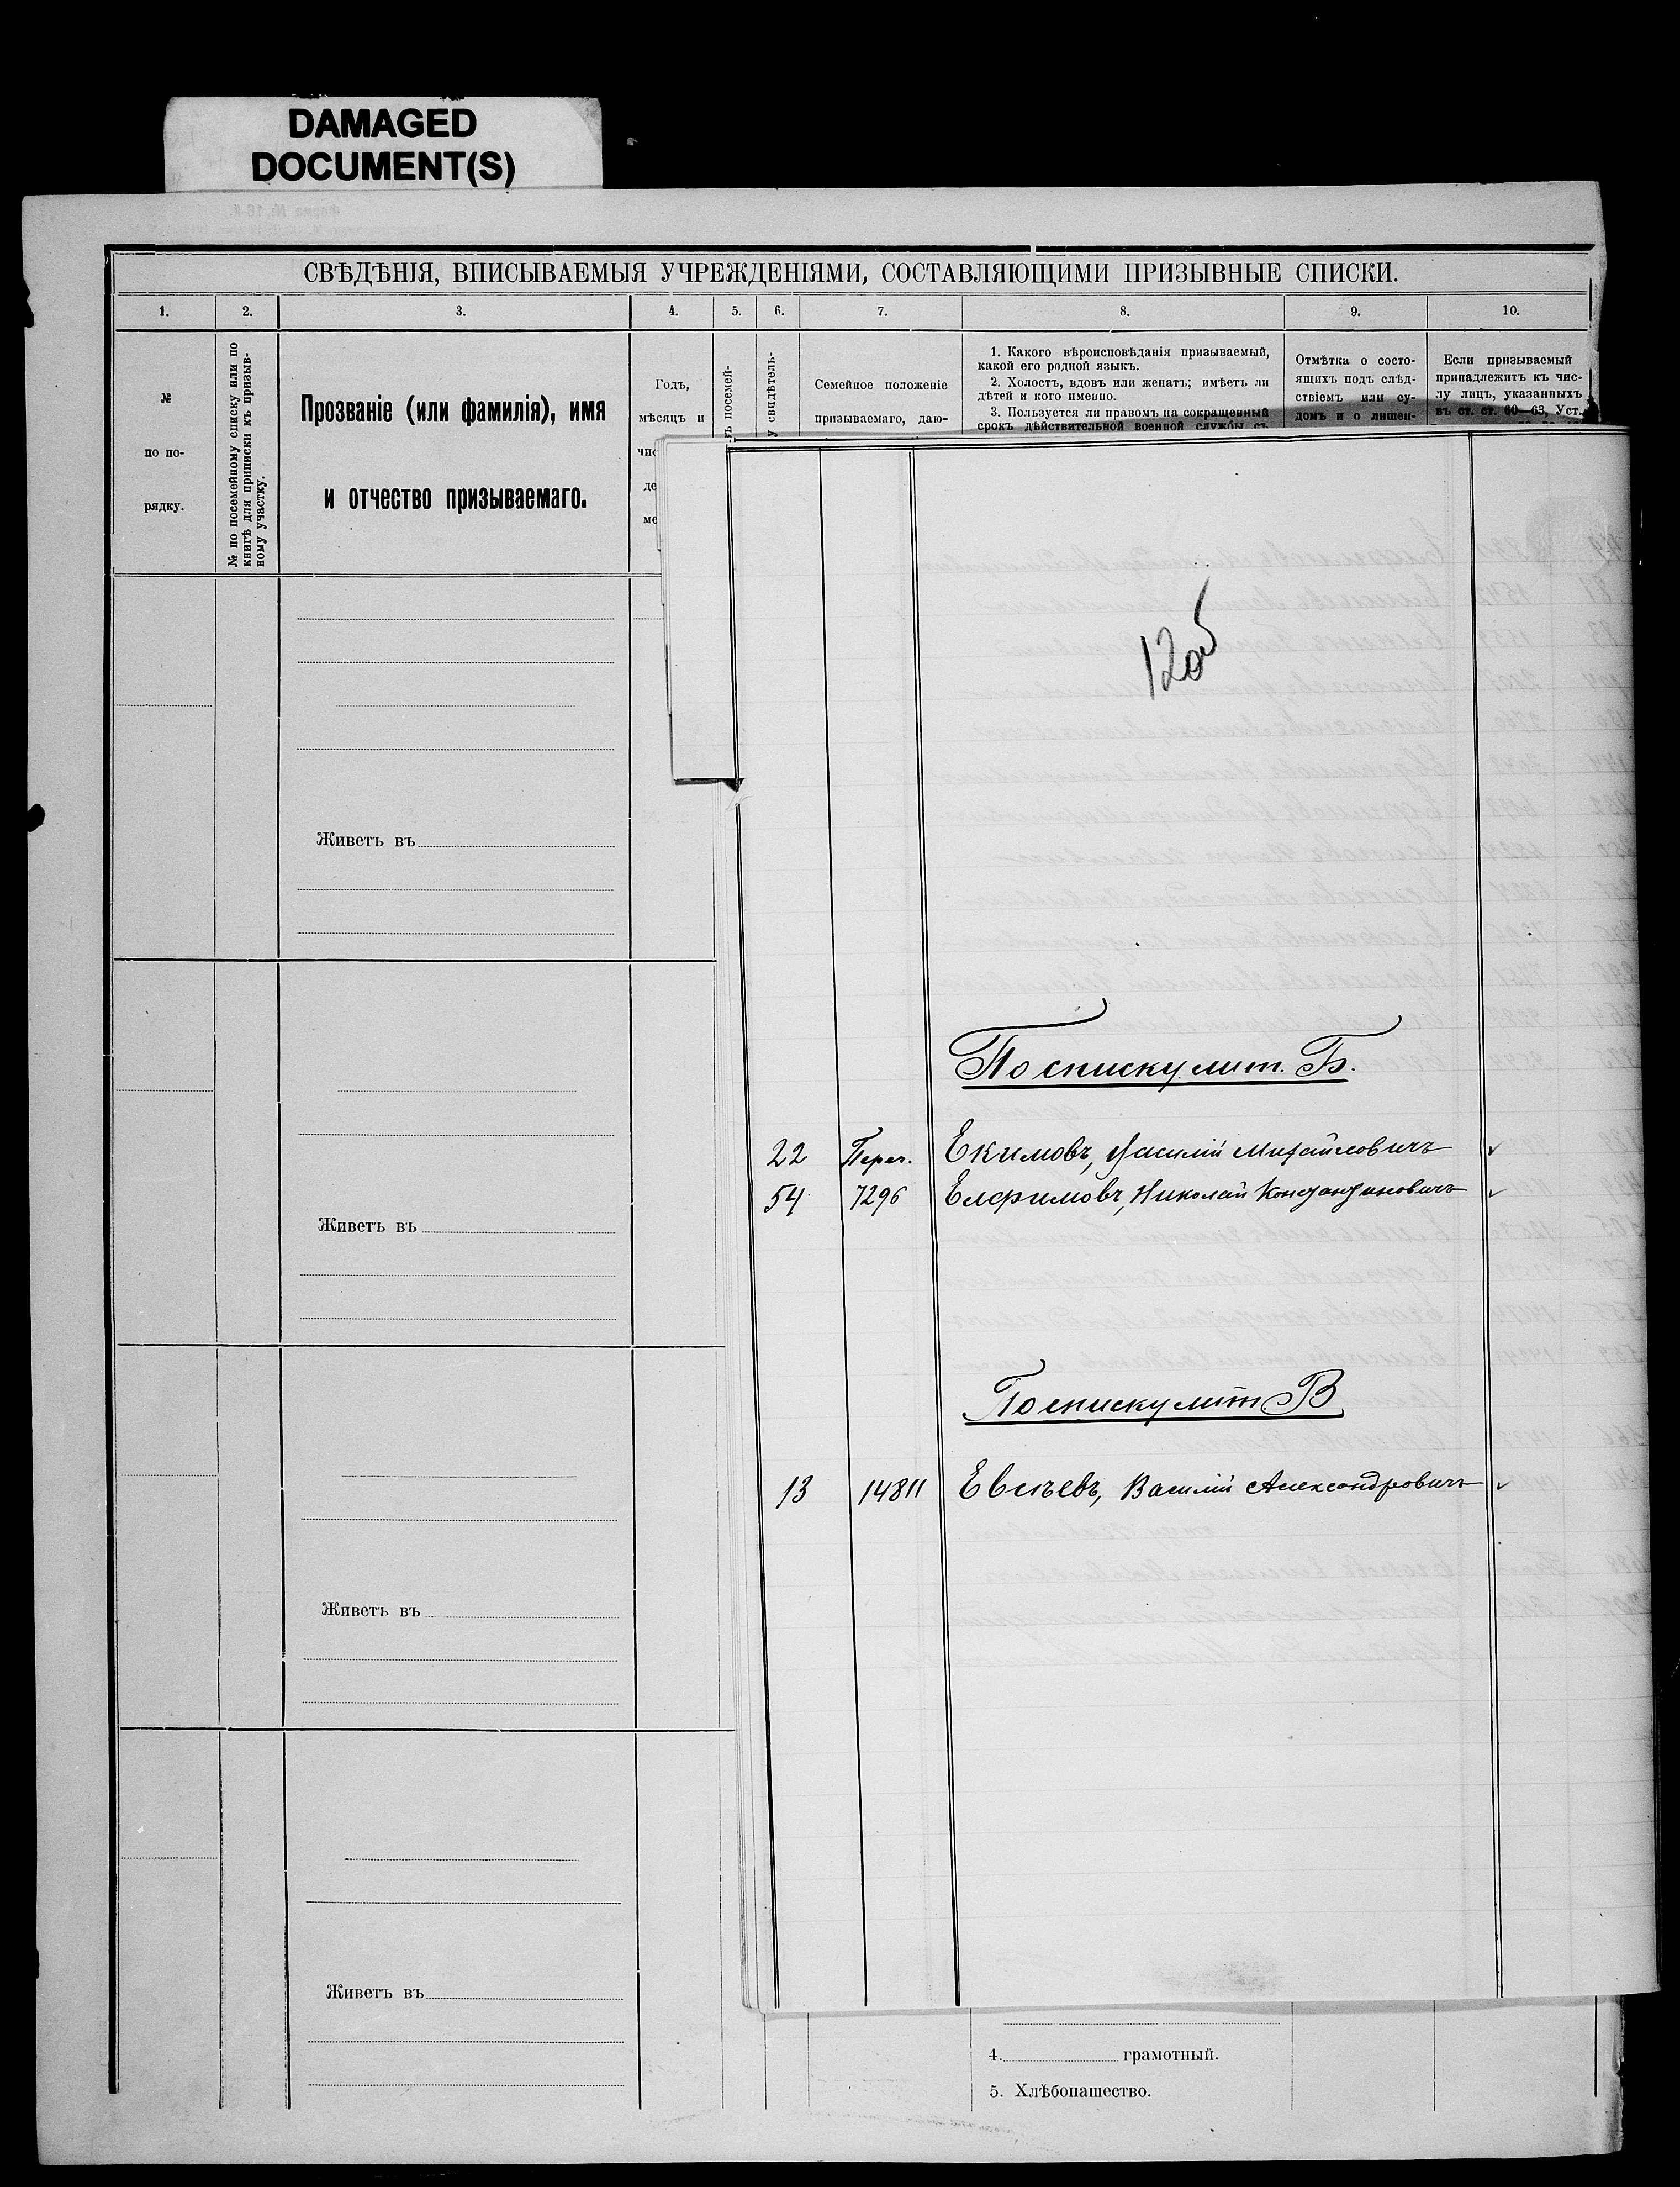 DAMAGED
DOCUMENT(S)
СВѢДѢНІЯ, ВПИСЫВАЕМЫЯ УЧРЕЖДЕНІЯМИ, СОСТАВЛЯЮЩИМИ ПРИЗЫВНЫЕ СПИСКИ.
1. 2. 3. 4. 5. 6. 7. 8. 9. 10.
№
по по-
рядку.
№ по посемейному списку или по
книгѣ для приписки къ призыв-
ному участку.
Прозваніе (или фамилія), имя
и отчество призываемаго.
Годъ,
мѣсяцъ и
чис
де
ме
ъ посемей-
у свидѣтель-
Семейное положеніе
призываемаго, даю-
1. Какого вѣроисповѣданія призываемый,
какой его родной языкъ.
2. Холостъ, вдовъ или женатъ; имѣетъ ли
дѣтей и кого именно.
3. Пользуется ли правомъ на сокращенный
срокъ дѣйствительной военной службы съ
Отмѣтка о состо-
ящихъ подъ слѣд-
ствіемъ или су-
домъ и о лишен-
Если призываемый
принадлежитъ къ чис-
лу лицъ, указанныхъ
въ ст. ст. 60—63, Уст.,
120б
Живетъ въ
По списку лит. Б.
22 Переч. Екимовъ, Василій Михайловичъ
54 7296 Елфимовъ, Николай Константиновичъ
Живетъ въ
По списку лит В
13 14811 Евсѣевъ, Василій Александровичъ
Живетъ въ
Живетъ въ
4. грамотный.
5. Хлѣбопашество.